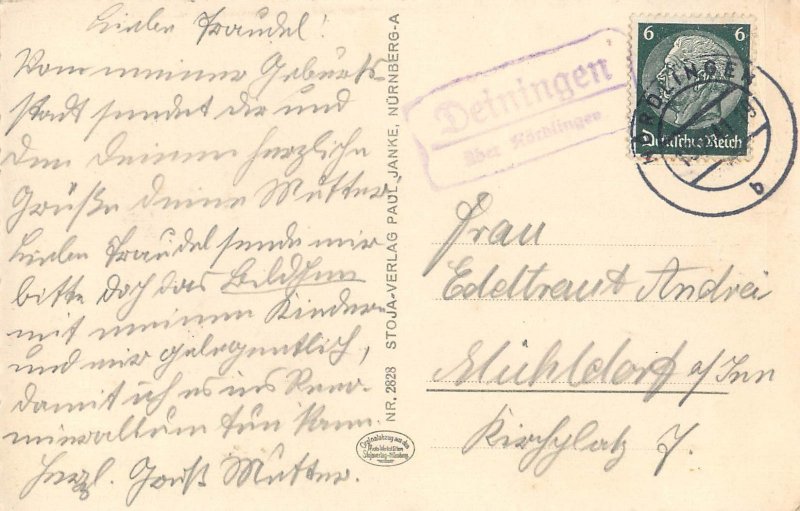 Liebe Traudel!
Vom meiner Geburts-
stadt sendet dir und
den Deinen herzliche
Grüße deine Mutter.
Liebe Traudel sende mir
bitte doch das Bildchen
mit meinen Kinder
und mir gelegentlich,
damit ich es ins
album tun kann
Herzl. Gruß Mutter.
NR. 2828 STOJA-VERLAG PAUL JANKE, NÜRNBERG-A
Originalabzug aus den
Stojaverlag-Nürnberg
Deiningen
über Nördlingen
6 6
Deutsches Reich
NÖRDLINGEN
b
Frau
Edeltraut Andrei
Mühldorf a/Inn
Kirchplatz 7.